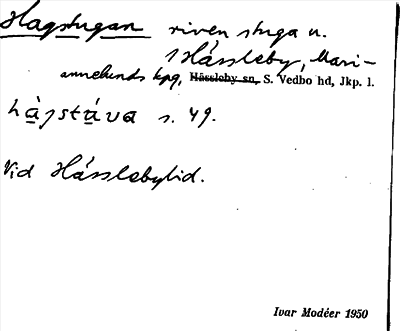 Hagstugan riven stuga u.
Hässleby, Mari-
annelunds kpg, Hässleby sn, S. Vedbo hd, Jkp. l.
hàjstáva s. 49.
Vid Hässlebylid.
Ivar Modéer 1950